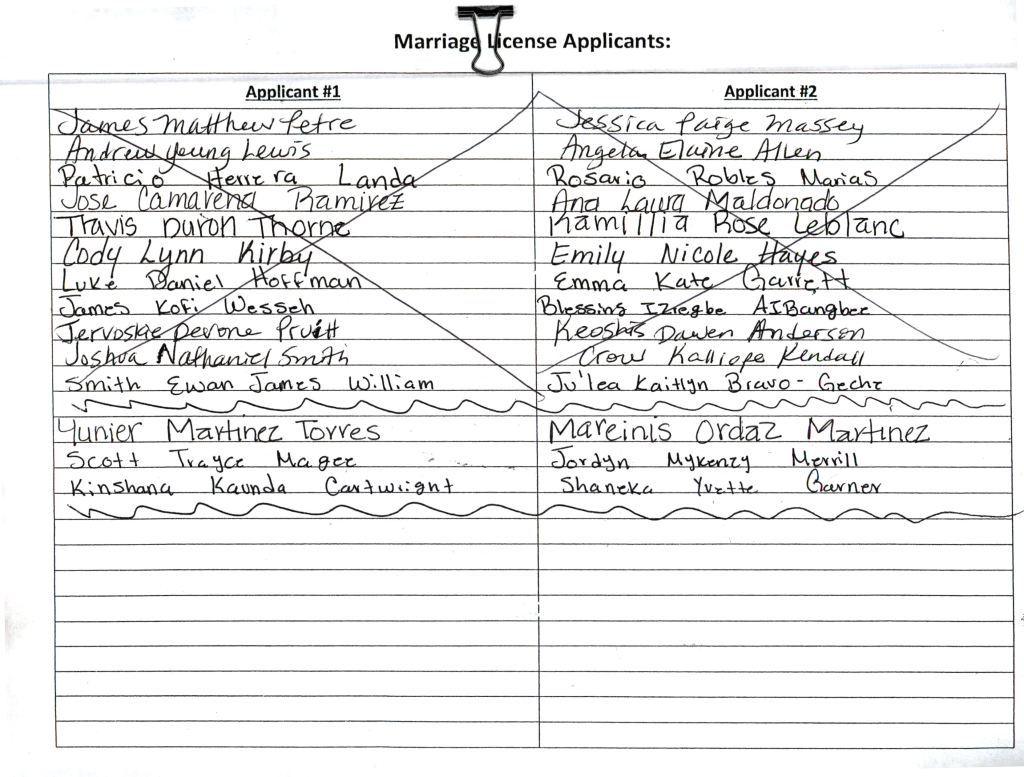 Marriage License Applicants:
Applicant #1 Applicant #2
James Matthew Petre Jessica Paige Massey
Andrew Young Lewis Angela Elaine Allen
Patricio Herrera Landa Rosario Robles Marias
Jose Camarena Ramirez Ana Laura Maldonado
Travis Duron Thorne Kamillia Rose Leblanc
Cody Lynn Kirby Emily Nicole Hayes
Luke Daniel Hoffman Emma Kate Garrett
James Kofi Wesseh Blessing Iziegbe AIBangbee
Jervoskie Devone Pruitt Dawen Anderson
Joshua Nathaniel Smith Crow Kalliope Kendall
Smith Ewan James William Ju'lea Kaitlyn Bravo-Geche
Yunier Martinez Torres Mareinis Ordaz Martinez
Scott Trayce Magee Jordyn Mykenzy Merrill
Kinshana Kaunda Cartwright Shaneka Yvette Garner